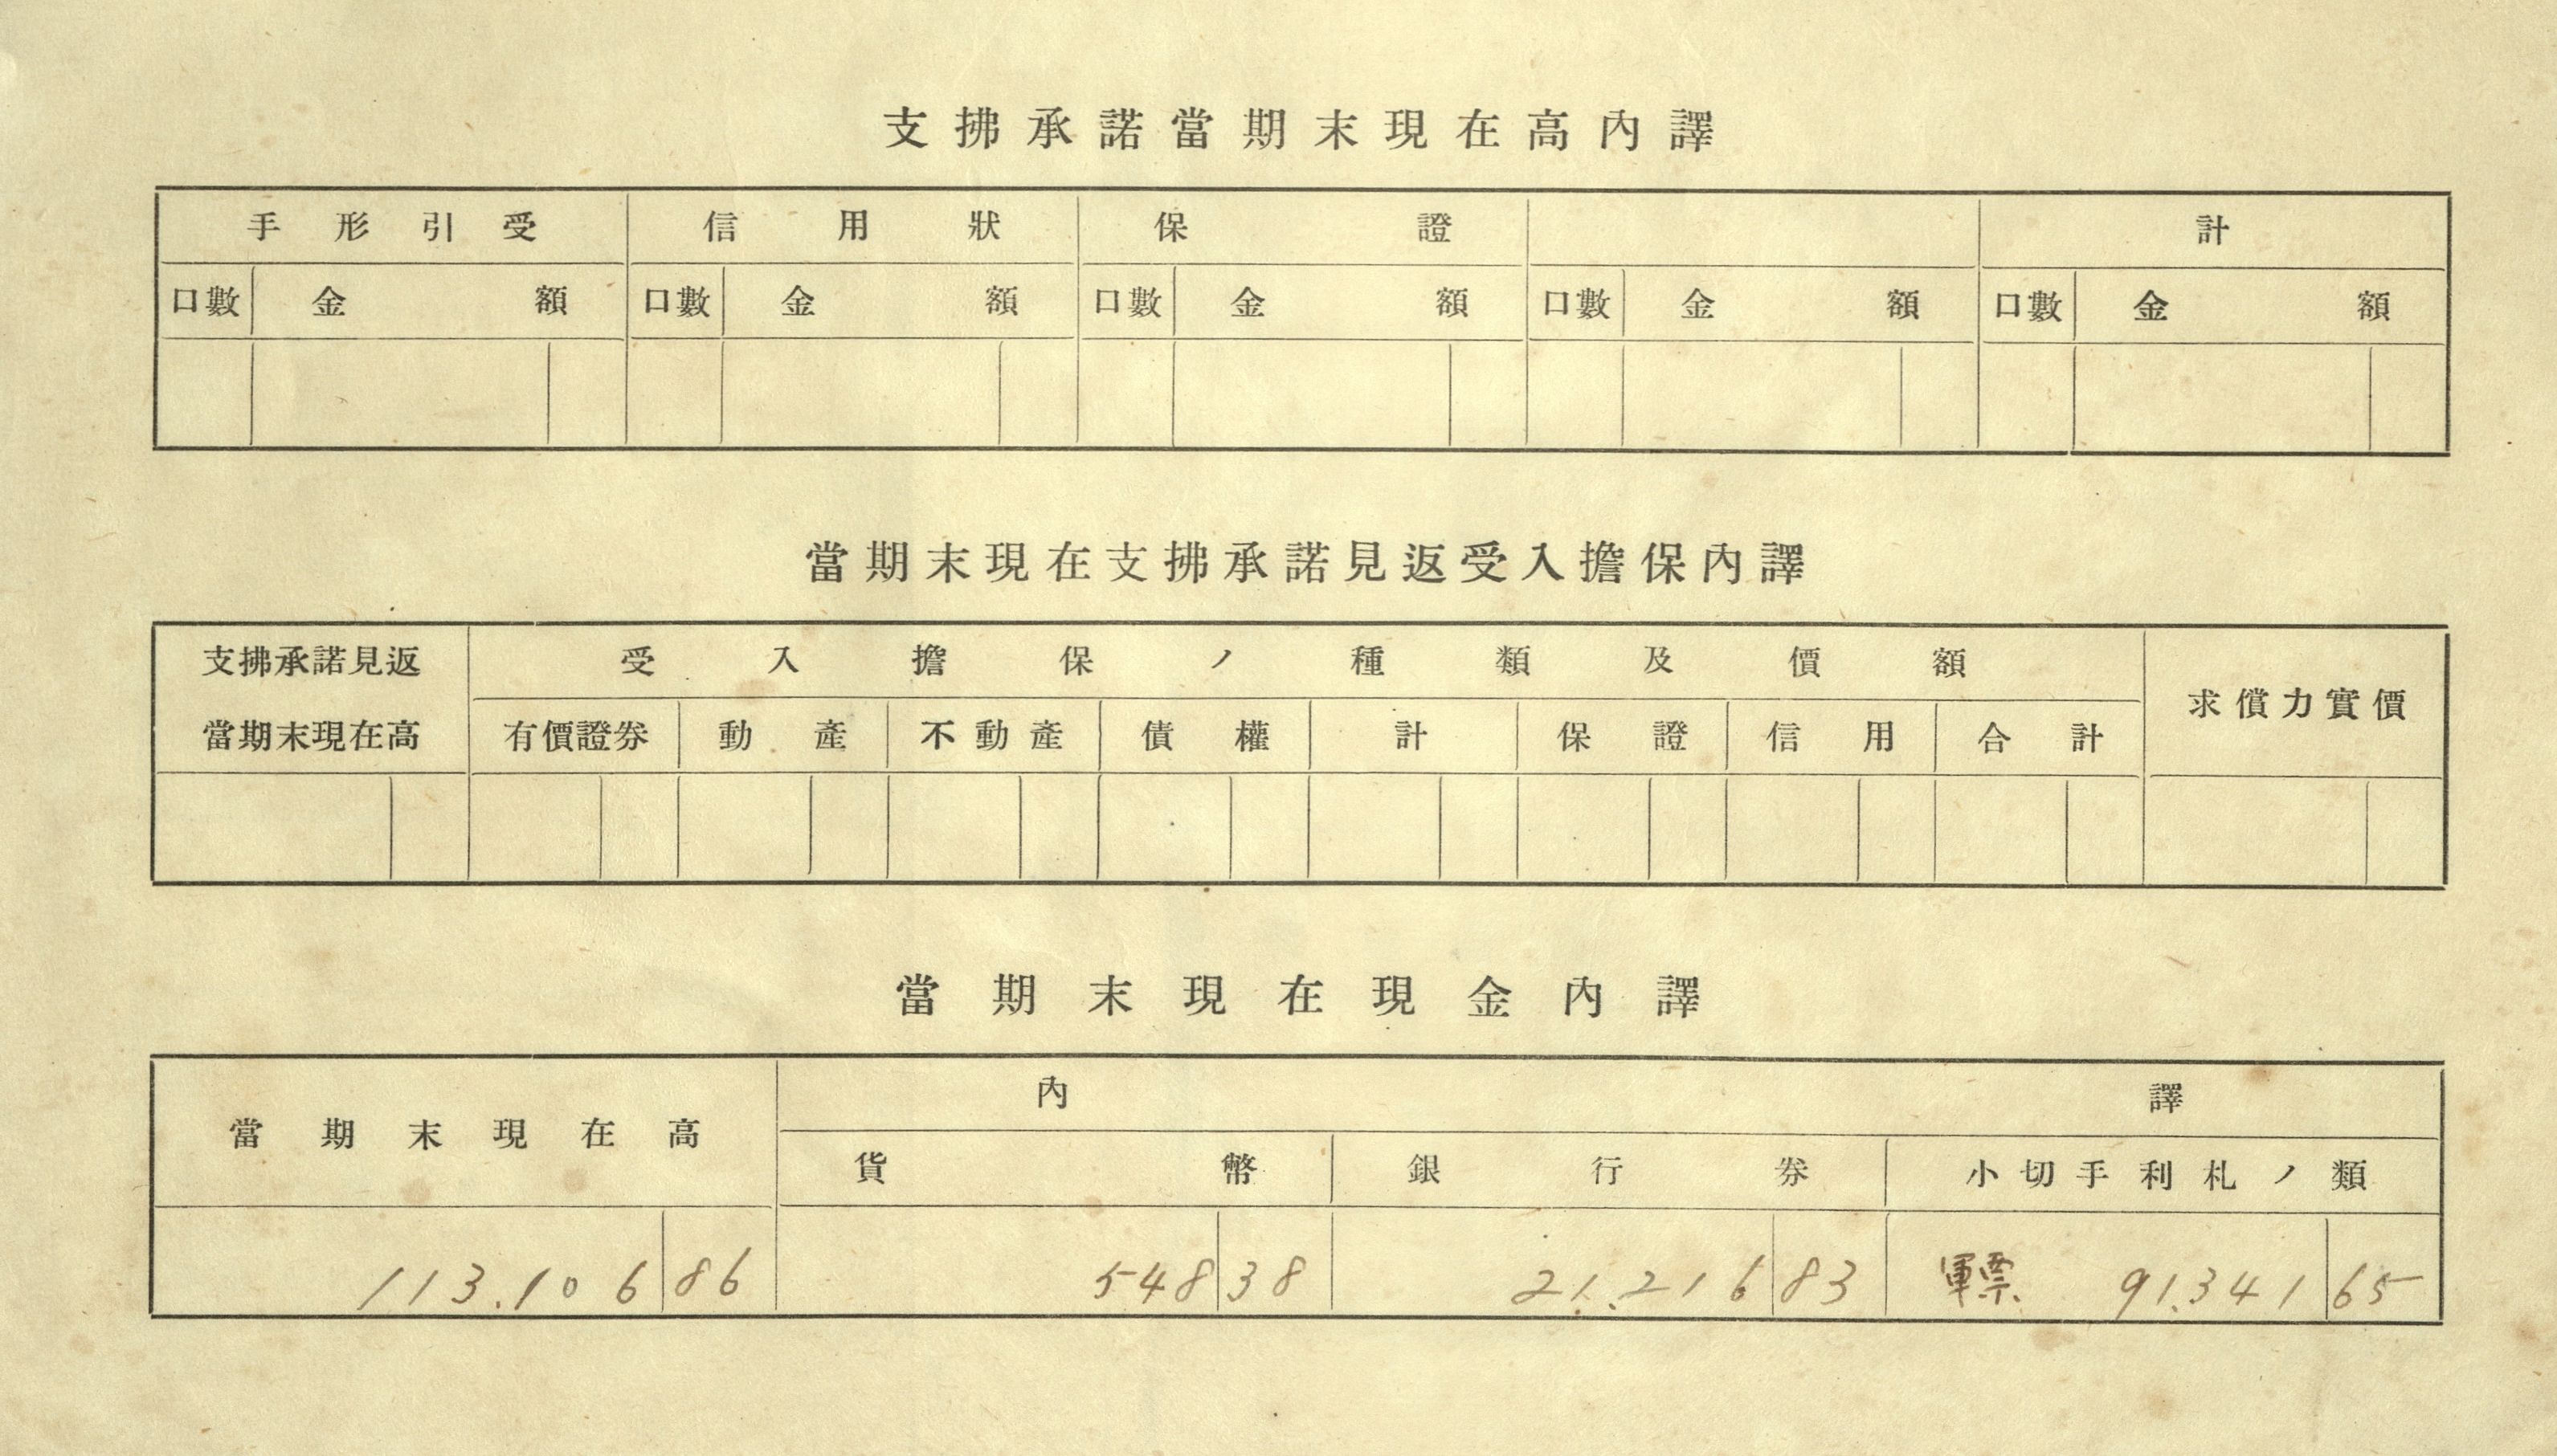 支拂承諾當期末現在高內譯
手形引受 信用狀 保證 計
口數 金額 口數 金額 口數 金額 口數 金額 口數 金額
當期末現在支拂承諾見返受入擔保內譯
支拂承諾見返 受入擔保ノ種類及價額
求償力實價
當期末現在高 有價證券 動產 不動產 債權 計 保證 信用 合計
當期末現在現金內譯
內譯
當期末現在高
貨幣 銀行券 小切手利札ノ類
113.106 86 548 38 21.216 83 軍票. 91.341 65